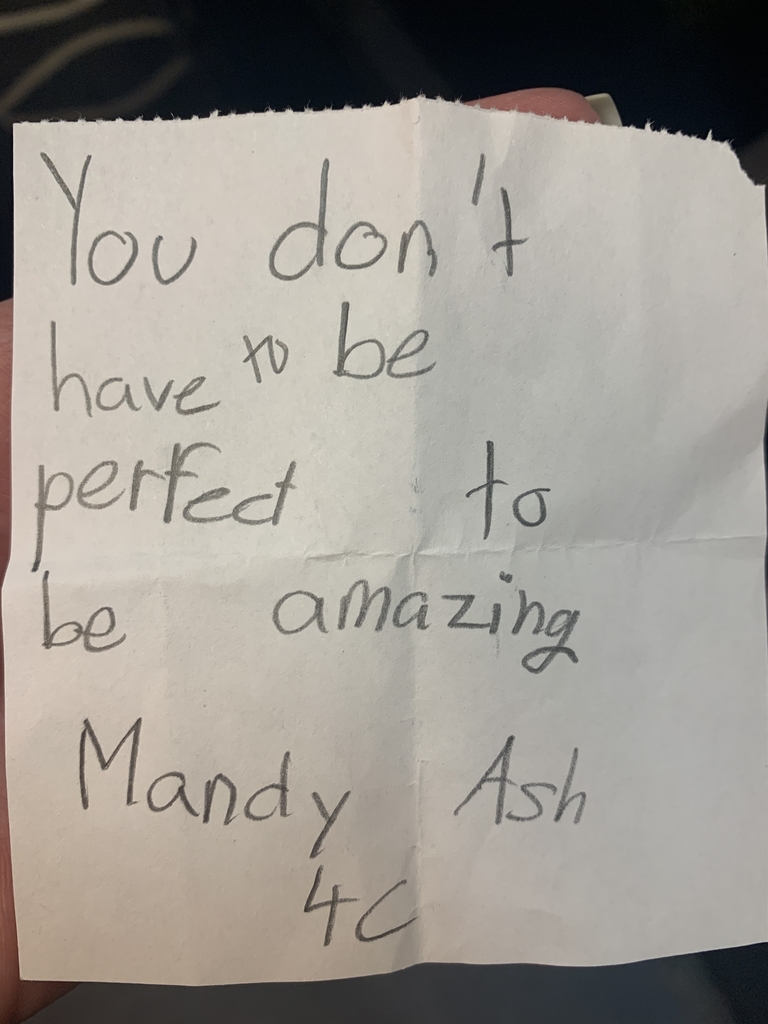 You don't
have to be
perfect to
be amazing
Mandy Ash
4C